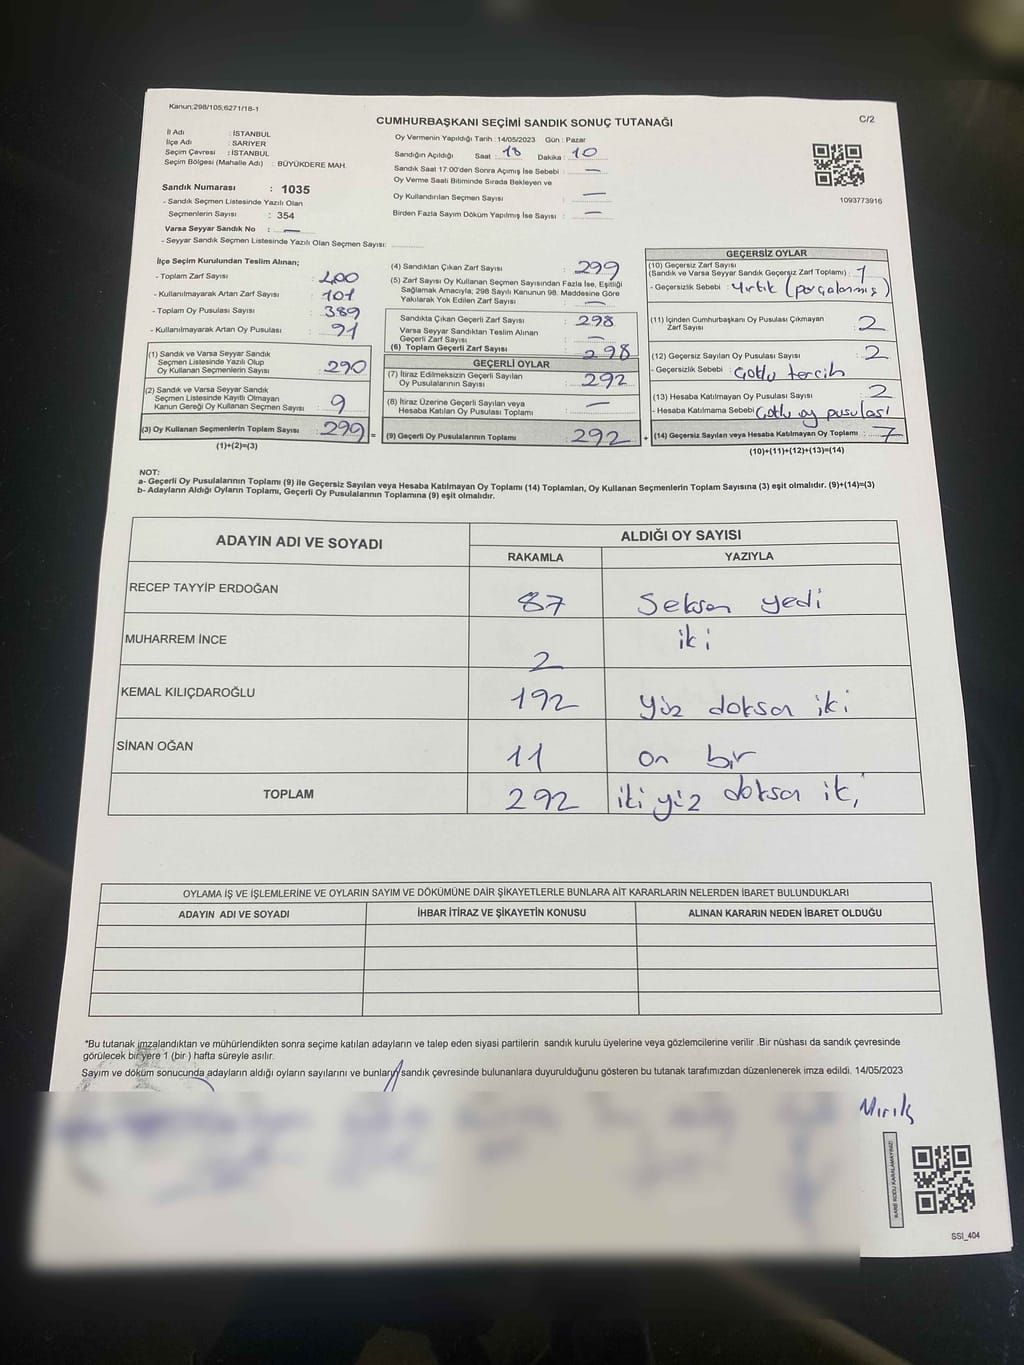 Kanun;298/105;6271/18-1
CUMHURBAŞKANI SEÇİMİ SANDIK SONUÇ TUTANAĞI
C/2
İl Adı : İSTANBUL
İlçe Adı : SARIYER
Seçim Çevresi : İSTANBUL
Seçim Bölgesi (Mahalle Adı) : BÜYÜKDERE MAH.
Sandık Numarası : 1035
- Sandık Seçmen Listesinde Yazılı Olan
Seçmenlerin Sayısı : 354
Varsa Seyyar Sandık No : —
- Seyyar Sandık Seçmen Listesinde Yazılı Olan Seçmen Sayısı: ..............
Oy Vermenin Yapıldığı Tarih :14/05/2023 Gün : Pazar
Sandığın Açıldığı Saat : 18 Dakika : 10
Sandık Saat 17:00'den Sonra Açımış İse Sebebi : —
Oy Verme Saati Bitiminde Sırada Bekleyen ve
Oy Kullandırılan Seçmen Sayısı : —
Birden Fazla Sayım Döküm Yapılmış İse Sayısı : —
1093773916
İlçe Seçim Kurulundan Teslim Alınan;
- Toplam Zarf Sayısı : 400
- Kullanılmayarak Artan Zarf Sayısı : 101
- Toplam Oy Pusulası Sayısı : 389
- Kullanılmayarak Artan Oy Pusulası : 91
(1) Sandık ve Varsa Seyyar Sandık
Seçmen Listesinde Yazılı Olup
Oy Kullanan Seçmenlerin Sayısı : 290
(2) Sandık ve Varsa Seyyar Sandık
Seçmen Listesinde Kayıtlı Olmayan
Kanun Gereği Oy Kullanan Seçmen Sayısı : 9
(3) Oy Kullanan Seçmenlerin Toplam Sayısı : 299 =
(1)+(2)=(3)
(4) Sandıktan Çıkan Zarf Sayısı : 299
(5) Zarf Sayısı Oy Kullanan Seçmen Sayısından Fazla İse, Eşitliği
Sağlamak Amacıyla; 298 Sayılı Kanunun 98. Maddesine Göre
Yakılarak Yok Edilen Zarf Sayısı : —
Sandıkta Çıkan Geçerli Zarf Sayısı : 298
Varsa Seyyar Sandıktan Teslim Alınan
Geçerli Zarf Sayısı : —
(6) Toplam Geçerli Zarf Sayısı : 298
GEÇERLİ OYLAR
(7) İtiraz Edilmeksizin Geçerli Sayılan
Oy Pusulalarının Sayısı : 292
(8) İtiraz Üzerine Geçerli Sayılan veya
Hesaba Katılan Oy Pusulası Toplamı : —
(9) Geçerli Oy Pusulalarının Toplamı : 292 +
GEÇERSİZ OYLAR
(10) Geçersiz Zarf Sayısı
(Sandık ve Varsa Seyyar Sandık Geçersiz Zarf Toplamı) : 1
- Geçersizlik Sebebi : Yırtık (parçalanmış)
(11) İçinden Cumhurbaşkanı Oy Pusulası Çıkmayan
Zarf Sayısı : 2
(12) Geçersiz Sayılan Oy Pusulası Sayısı : 2
- Geçersizlik Sebebi : Çoklu tercih
(13) Hesaba Katılmayan Oy Pusulası Sayısı : 2
- Hesaba Katılmama Sebebi : Çoklu oy pusulası
(14) Geçersiz Sayılan veya Hesaba Katılmayan Oy Toplamı : 7
(10)+(11)+(12)+(13)=(14)
NOT:
a- Geçerli Oy Pusulalarının Toplamı (9) ile Geçersiz Sayılan veya Hesaba Katılmayan Oy Toplamı (14) Toplamları, Oy Kullanan Seçmenlerin Toplam Sayısına (3) eşit olmalıdır. (9)+(14)=(3)
b- Adayların Aldığı Oyların Toplamı, Geçerli Oy Pusulalarının Toplamına (9) eşit olmalıdır.
ADAYIN ADI VE SOYADI ALDIĞI OY SAYISI
RAKAMLA YAZIYLA
RECEP TAYYİP ERDOĞAN 87 Seksen yedi
MUHARREM İNCE 2 iki
KEMAL KILIÇDAROĞLU 192 yüz doksan iki
SİNAN OĞAN 11 on bir
TOPLAM 292 iki yüz doksan iki
OYLAMA İŞ VE İŞLEMLERİNE VE OYLARIN SAYIM VE DÖKÜMÜNE DAİR ŞİKAYETLERLE BUNLARA AİT KARARLARIN NELERDEN İBARET BULUNDUKLARI
ADAYIN ADI VE SOYADI İHBAR İTİRAZ VE ŞİKAYETİN KONUSU ALINAN KARARIN NEDEN İBARET OLDUĞU
*Bu tutanak imzalandıktan ve mühürlendikten sonra seçime katılan adayların ve talep eden siyasi partilerin sandık kurulu üyelerine veya gözlemcilerine verilir .Bir nüshası da sandık çevresinde
görülecek bir yere 1 (bir ) hafta süreyle asılır.
Sayım ve döküm sonucunda adayların aldığı oyların sayılarını ve bunların sandık çevresinde bulunanlara duyurulduğunu gösteren bu tutanak tarafımızdan düzenlenerek imza edildi. 14/05/2023
KARE KODU KARALAMAYINIZ!
SSI_404